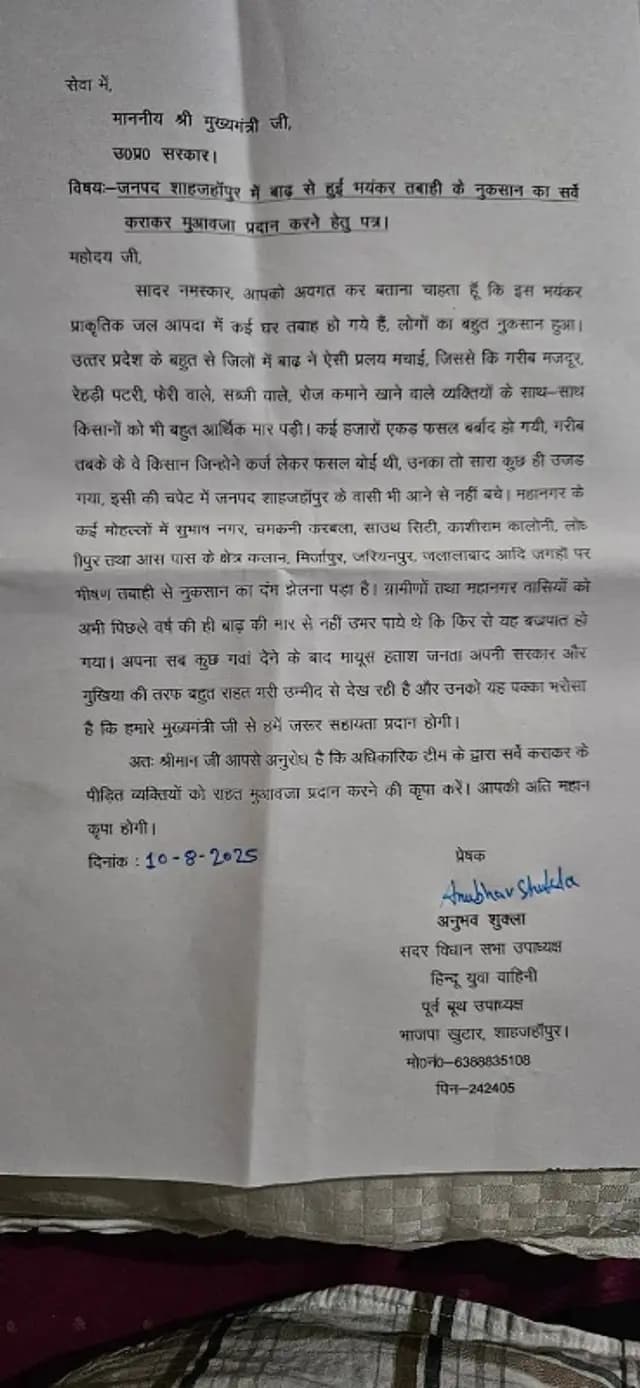 सेवा में,
माननीय श्री मुख्यमंत्री जी,
उ0प्र0 सरकार।
विषयः–जनपद शाहजहाँपुर में बाढ़ से हुई भयंकर तबाही के नुकसान का सर्वे
कराकर मुआवजा प्रदान करने हेतु पत्र।
महोदय जी,
सादर नमस्कार, आपको अवगत कर बताना चाहता हूँ कि इस भयंकर
प्राकृतिक जल आपदा में कई घर तबाह हो गये हैं, लोगों का बहुत नुकसान हुआ।
उत्तर प्रदेश के बहुत से जिलों में बाढ़ ने ऐसी प्रलय मचाई, जिससे कि गरीब मजदूर,
रेहड़ी पटरी, फेरी वाले, सब्जी वाले, रोज कमाने खाने वाले व्यक्तियों के साथ–साथ
किसानों को भी बहुत आर्थिक मार पड़ी। कई हजारों एकड़ फसल बर्बाद हो गयी, गरीब
तबके के वे किसान जिन्होने कर्ज लेकर फसल बोई थी, उनका तो सारा कुछ ही उजड
गया, इसी की चपेट में जनपद शाहजहाँपुर के वासी भी आने से नहीं बचे। महानगर के
कई मोहल्लों में सुभाष नगर, चमकनी करबला, साउथ सिटी, काशीराम कालोनी,
तथा आस पास के क्षेत्र कलान, मिर्जापुर, जरियनपुर, जलालाबाद आदि जगहों पर
भीषण तबाही से नुकसान का दंम झेलना पड़ा है। ग्रामीणों तथा महानगर वासियों को
अभी पिछले वर्ष की ही बाढ़ की मार से नहीं उभर पाये थे कि फिर से यह बज्रपात हो
गया। अपना सब कुछ गवां देने के बाद मायूस हताश जनता अपनी सरकार और
मुखिया की तरफ बहुत राहत भरी उम्मीद से देख रही है और उनको यह पक्का भरोसा
है कि हमारे मुख्यमंत्री जी से हमें जरूर सहायता प्रदान होगी।
अतः श्रीमान जी आपसे अनुरोध है कि अधिकारिक टीम के द्वारा सर्वे कराकर के
पीड़ित व्यक्तियों को राहत मुआवजा प्रदान करने की कृपा करें। आपकी अति महान
कृपा होगी।
दिनांक : 10-8-2025
प्रेषक
Anubhav Shukla
अनुभव शुक्ला
सदर विधान सभा उपाध्यक्ष
हिन्दू युवा वाहिनी
पूर्व बूथ उपाध्यक्ष
भाजपा खुटार, शाहजहाँपुर।
मो0नं0–6388835108
पिन–242405